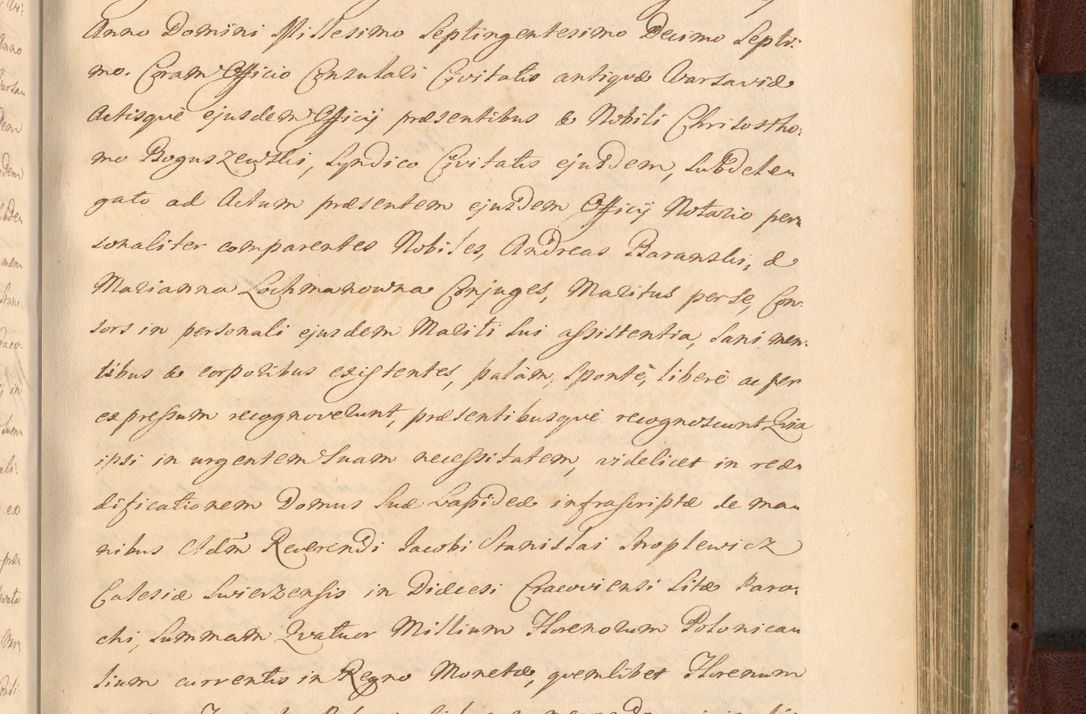 Anno Domini Millesimo Septingentesimo Decimo Septi:
mo. Coram Officio Consulari Civitatis antiquæ Varsaviæ
Actisque ejusdem Officij præsentibus & Nobili Chrisostho:
mo Boguszewski, Syndico Civitatis ejusdem, Subdele
gato ad Actum præsentem ejusdem Officij Notario per
sonaliter comparentes Nobiles, Andreas Baranski, &
Marianna Lochmanowna Conjuges, Maritus per se, Con
sors in personali ejusdem Mariti sui assistentia, sani men:
tibus & corporibus existentes, palàm, spontè, liberè ac per
expressum recognoverunt, præsentibusquè recognoscunt Quia
ipsi in urgentem suam necessitatem, videlicet in reæ
dificationem Domus suæ Lapideæ infrascriptæ de ma
nibus Adm Reverendi Jacobi Stanislai Sroplewicz
Eclesiæ Swierzensis in Diæcesi Cracoviensi sitæ Paro:
chi, Summam Quatuor Millium Florenorum Polonica
lium currentis in Regno Monetæ, quemlibet Florenum